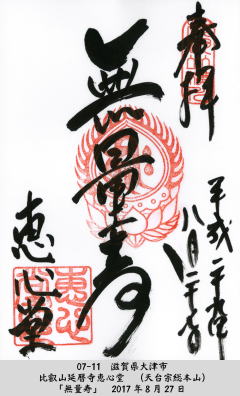 奉拝
無量寿
平成二十九年
八月二十七日
恵心堂
07-11　滋賀県大津市
比叡山延暦寺恵心堂　（天台宗総本山）
「無量寿」　2017年8月27日